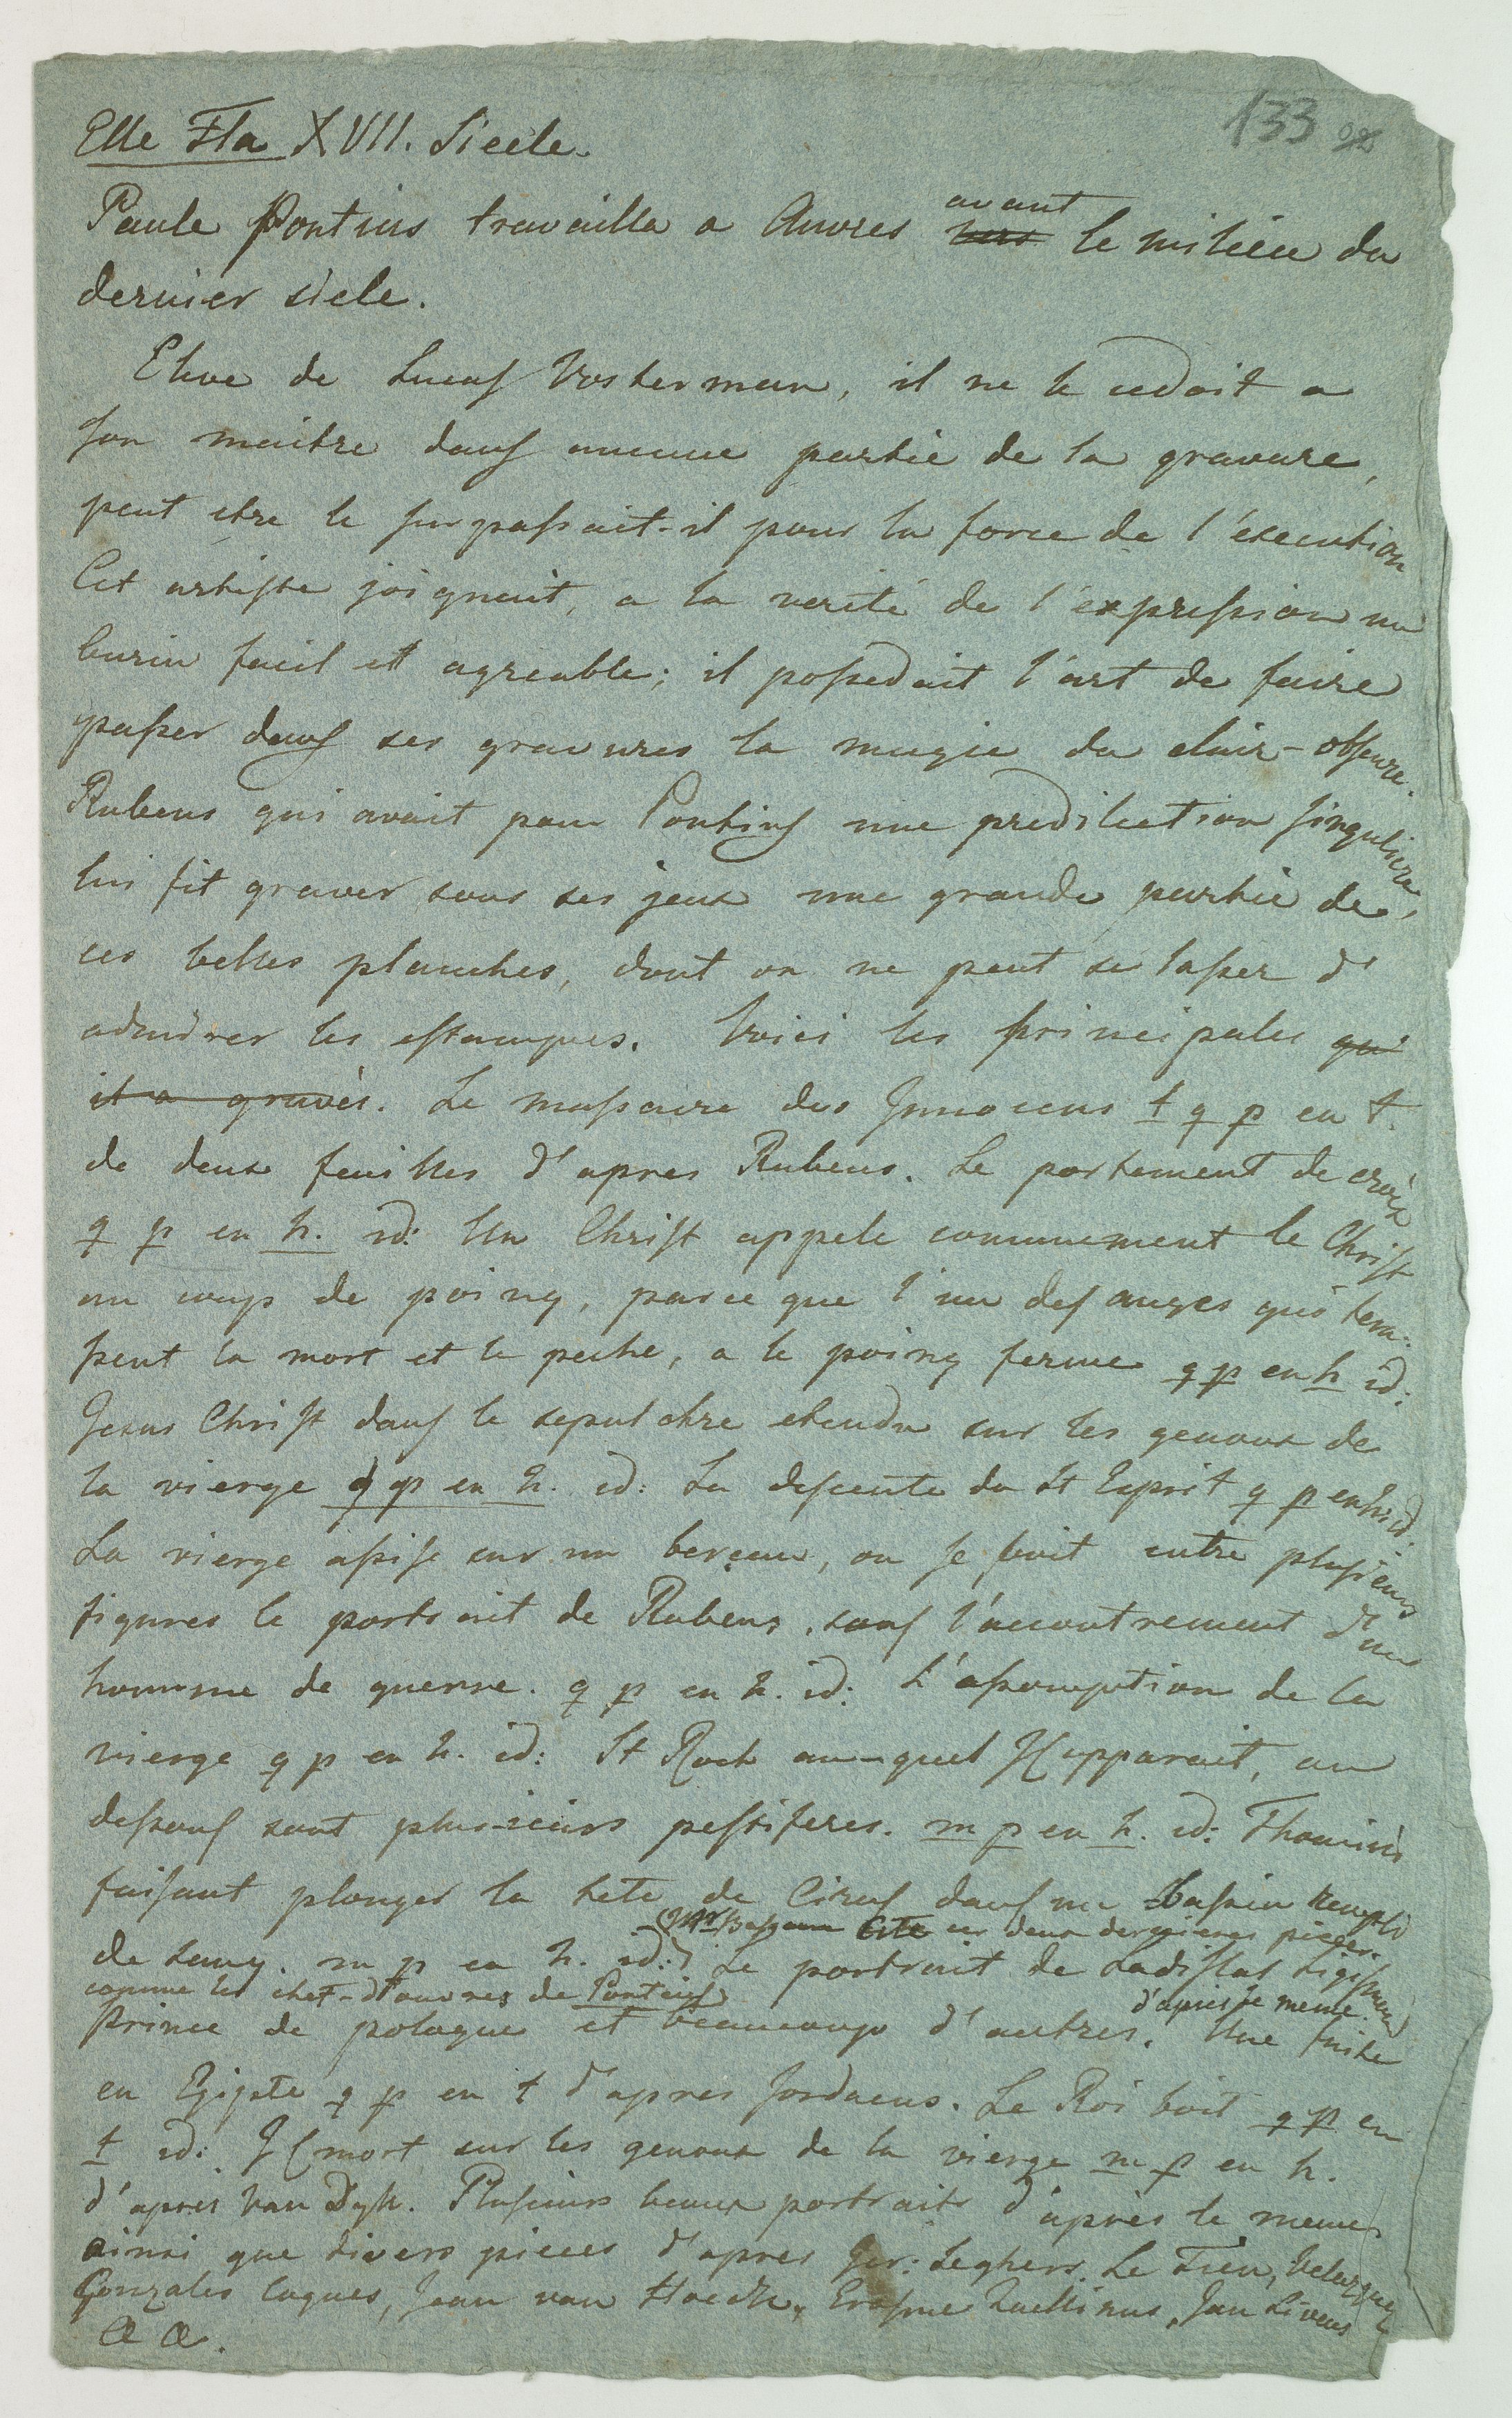 133 92
Elle Fla XVII. Siecle.
Paule Pontius travailla a Anvres avant vers le milieu du
dernier siele.
Eleve de Lucas Vosterman, il ne le cedait a
son maitre dans aucune partie de la gravure,
peut etre le surpassait-il pour la force de l'execution
Cet artiste joignait, a la verité de l'expression un
burin facil et agreable; il possedait l'art de faire
passer dans ses gravures la magie du clair-obscure.
Rubens qui avait pour Pontius une predilection singuliere,
lui fit graver sous ses jeux une grande partie de
ces belles planches, dont on ne peut se lasser d'
admirer les estampes. Voici les principales qui
il a gravés. Le massacre des Innocens t g p en t.
de deux feuilles d'apres Rubens. Le portement de croix
g p en h. id: Un Christ appele communement le Christ
au coup de poing, parce que l'un des anges qui terra-
sent la mort et le peche, a le poing ferme g p en h id:
Jesus Christ dans le sepulchre etendu sur les genoux de
la vierge g p en h. id: La descente du St Esprit g p en h id:
La vierge assise sur un berceau, on se voit entre plusieurs
figures le portrait de Rubens, sous l'accoutrement d'un
homme de guerre. g p en h. id: L'assomption de la
vierge g p en h. id: St Roch au-quel JC apparait, au
dessous sont plusieurs pestiferes. m p en h. id: Thomiris
faisant plonger la tete de Cirus dans un Bassin rempli
(Mr Bassan Cite ces deux dernieres pieces
de sang. m p en h. id:) Le portrait de Ladislas Sigismond
comme les chef-d'ouvres de Pontius)
d'apres le meme.
Prince de pologne et beaucoup d'autres. Une fuite
en Egipte g p en t d'apres Jordaens. Le Roi boit g p en
t id: JC mort sur les genoux de la vierge m p en h.
d'apres Van Dyk. Plusieurs beaux portraits d'apres le meme
ainsi que divers pieces d'apres Ger: Seghers. Le Tien, Velazquez
Gonzales Coques, Jean van Hoeck, Erasme Quellinus, Jan Livens
& &.